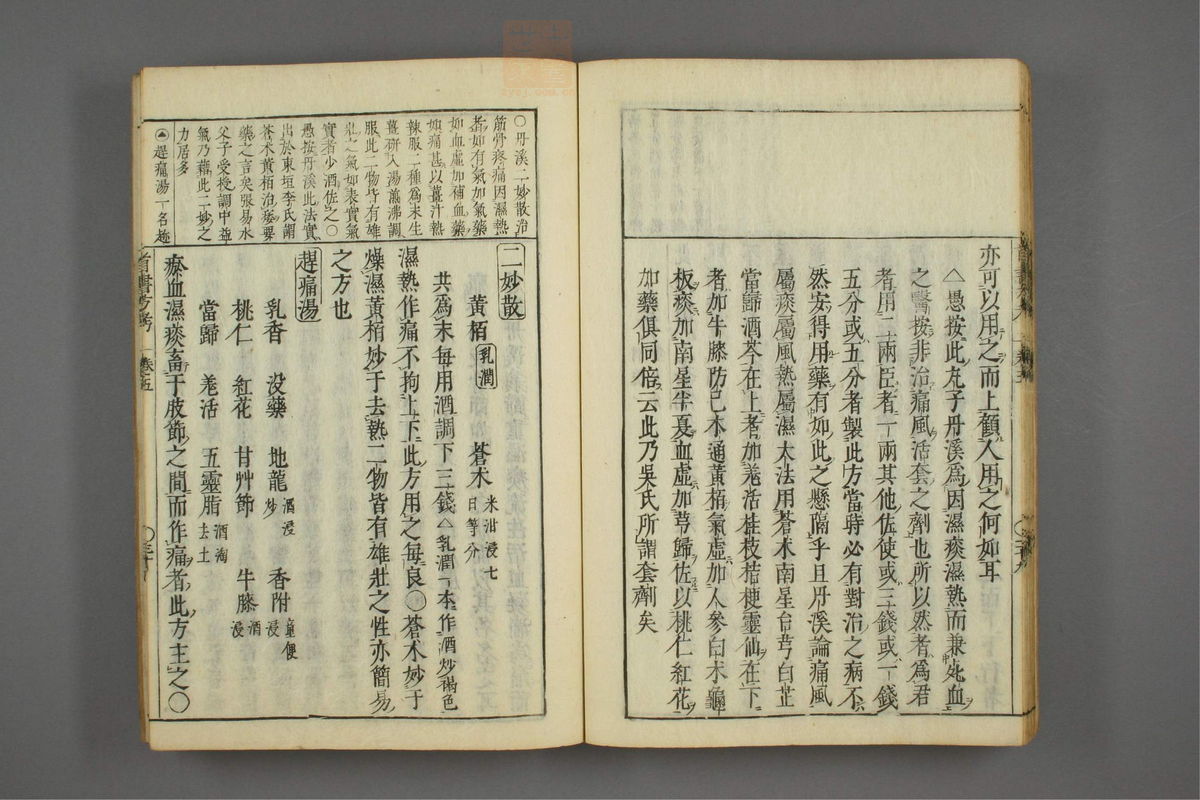 亦可以用之而上顧人用之何如耳
△愚按此左子丹溪爲因濕痰濕熱而兼死血
之醫按非治痛風活套之劑也所以然者爲君
者用二兩臣者一兩其他佐使或三錢或一錢
五分或五分者製此方當時必有對治之病不
然安得用藥有如此之懸隔乎且丹溪論痛風
屬痰屬風熱屬濕大法用蒼术南星台芎白芷
當歸酒芩在上者加羗活桂枝桔梗靈仙在下
者加牛膝防己木通黃栢氣虛加人參白术龜
板痰加南星半夏血虛加芎歸佐以桃仁紅花
加藥俱同倍云此乃吳氏所謂套劑矣
○丹溪二妙散治
筋骨疼痛因濕熱
者如有氣加氣藥
如血虛加補血藥
如痛甚以薑汁熱
辣服二種爲末生
薑研入湯煎沸調
服此二物皆有雄
壯之氣如表實氣
實者少酒佐之○
愚按丹溪此法實
出於東垣李氏聞
蒼术黃栢治痿要
藥之言矣張易水
父子受授調中益
氣乃藉此二妙之
力居多
趕痛湯一名趂
二妙散
黃栢 乳潤 蒼术 米泔浸七日等分
共爲末每用酒調下三錢△乳潤一本作酒炒褐色
濕熱作痛不拘上下此方用之每良○蒼术妙于
燥濕黃栢妙于去熱二物皆有雄壯之性亦簡易
之方也
趕痛湯
乳香 没藥 地龍 酒浸炒 香附 童便浸
桃仁 紅花 甘艸節 牛膝 酒浸
當歸 羗活 五靈脂 酒淘去土
瘀血濕痰畜于肢節之間而作痛者此方主之○